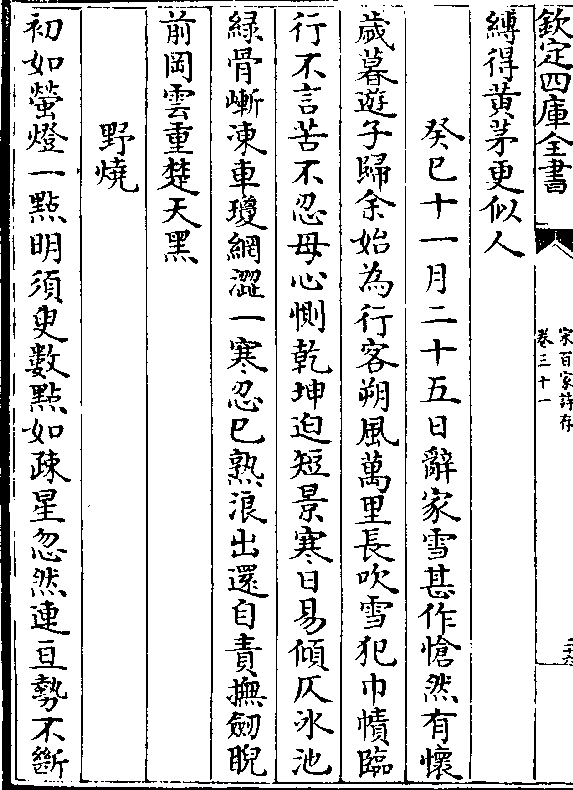 欽定四庫全書
宋百家詩存
卷三十一
二十六
縛得黄茅更似人
癸巳十一月二十五日辭家雪甚作愴然有懷
歳暮遊子歸余始為行客朔風萬里長吹雪犯巾幘臨
行不言苦不忍母心惻乾坤迫短景寒日易傾仄氷池
緑骨嶄凍車瓊網澀一寒忍已熟浪出還自責撫劒睨
前岡雲重楚天黑
野燒
初如螢燈一點明須臾數點如疎星忽然連亘勢不斷